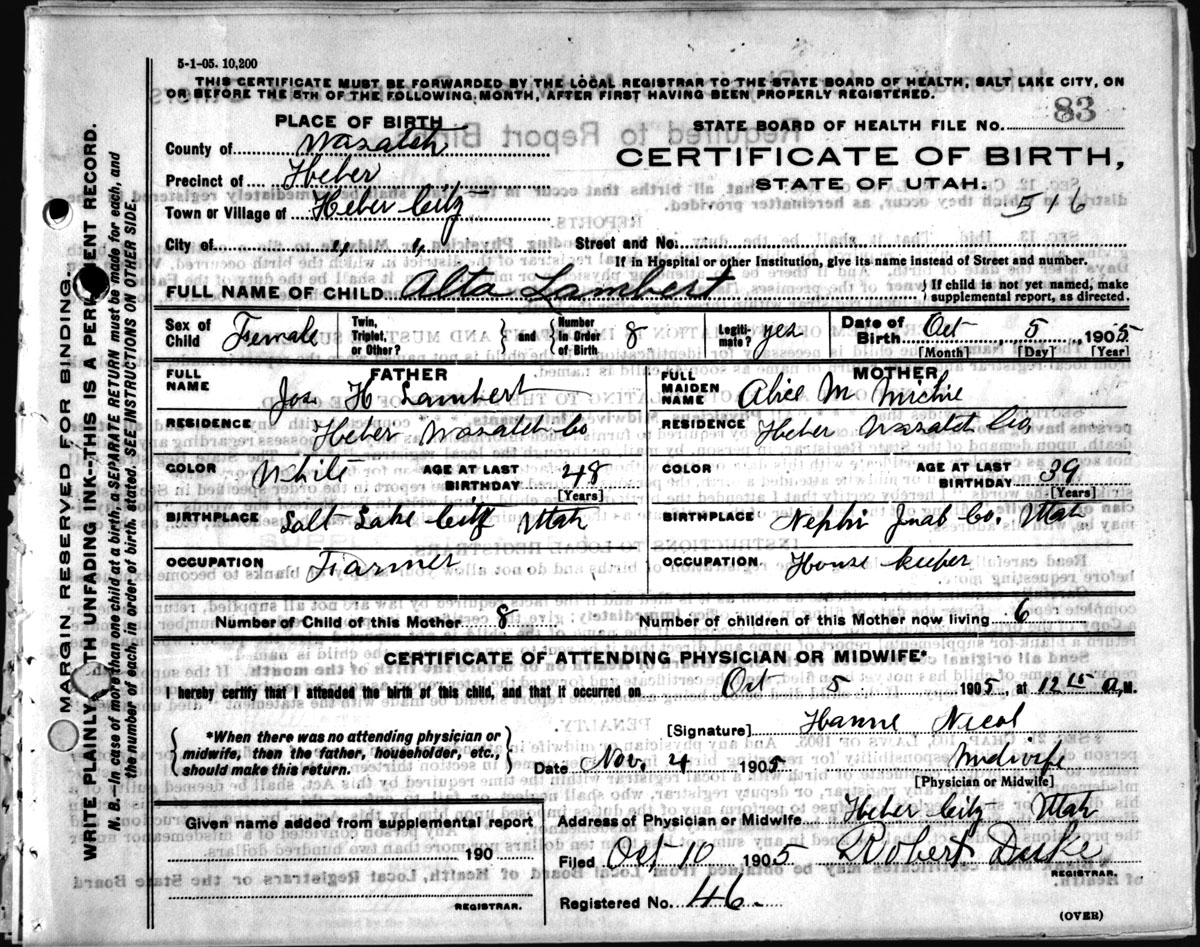 5-1-05. 10,200
THIS CERTIFICATE MUST BE FORWARDED BY THE LOCAL REGISTRAR TO THE STATE BOARD OF HEALTH, SALT LAKE CITY, ON
OR BEFORE THE 5TH OF THE FOLLOWING MONTH, AFTER FIRST HAVING BEEN PROPERLY REGISTERED.
PLACE OF BIRTH
STATE BOARD OF HEALTH FILE No. 83
County of Wasatch
CERTIFICATE OF BIRTH,
Precinct of Heber
STATE OF UTAH.
516
Town or Village of Heber City
City of " " Street and No.
If in Hospital or other Institution, give its name instead of Street and number.
FULL NAME OF CHILD Alta Lambert } If child is not yet named, make
supplemental report, as directed.
Sex of Child Female Twin, Triplet, or Other? } and { Number in Order of Birth 8 Legiti-mate? yes Date of Birth Oct 5 1905
[Month] [Day] [Year]
FATHER
MOTHER
FULL NAME Jos. H Lambert
FULL MAIDEN NAME Alice M Michie
RESIDENCE Heber Wasatch Co
RESIDENCE Heber Wasatch Co
COLOR White AGE AT LAST BIRTHDAY 48 [Years]
COLOR AGE AT LAST BIRTHDAY 39 [Years]
BIRTHPLACE Salt Lake City Utah
BIRTHPLACE Nephi Juab Co. Utah
OCCUPATION Farmer
OCCUPATION House keeper
Number of Child of this Mother 8 Number of children of this Mother now living 6
CERTIFICATE OF ATTENDING PHYSICIAN OR MIDWIFE*
I hereby certify that I attended the birth of this child, and that it occurred on Oct 5 1905, at 12 15 a.M.
{ *When there was no attending physician or
midwife, then the father, householder, etc.,
should make this return. }
[Signature] Hanne Nicol
Date Nov. 4 1905. Midwife
[Physician or Midwife]
Given name added from supplemental report
190
REGISTRAR.
Address of Physician or Midwife Heber City Utah
Filed Oct 10 1905 Robert Duke
REGISTRAR.
Registered No. 46.
(OVER)
MARGIN RESERVED FOR BINDING.
WRITE PLAINLY WITH UNFADING INK--THIS IS A PERMANENT RECORD.
N. B.--In case of more than one child at a birth, a SEPARATE RETURN must be made for each, and
the number of each, in order of birth, stated. SEE INSTRUCTIONS ON OTHER SIDE.